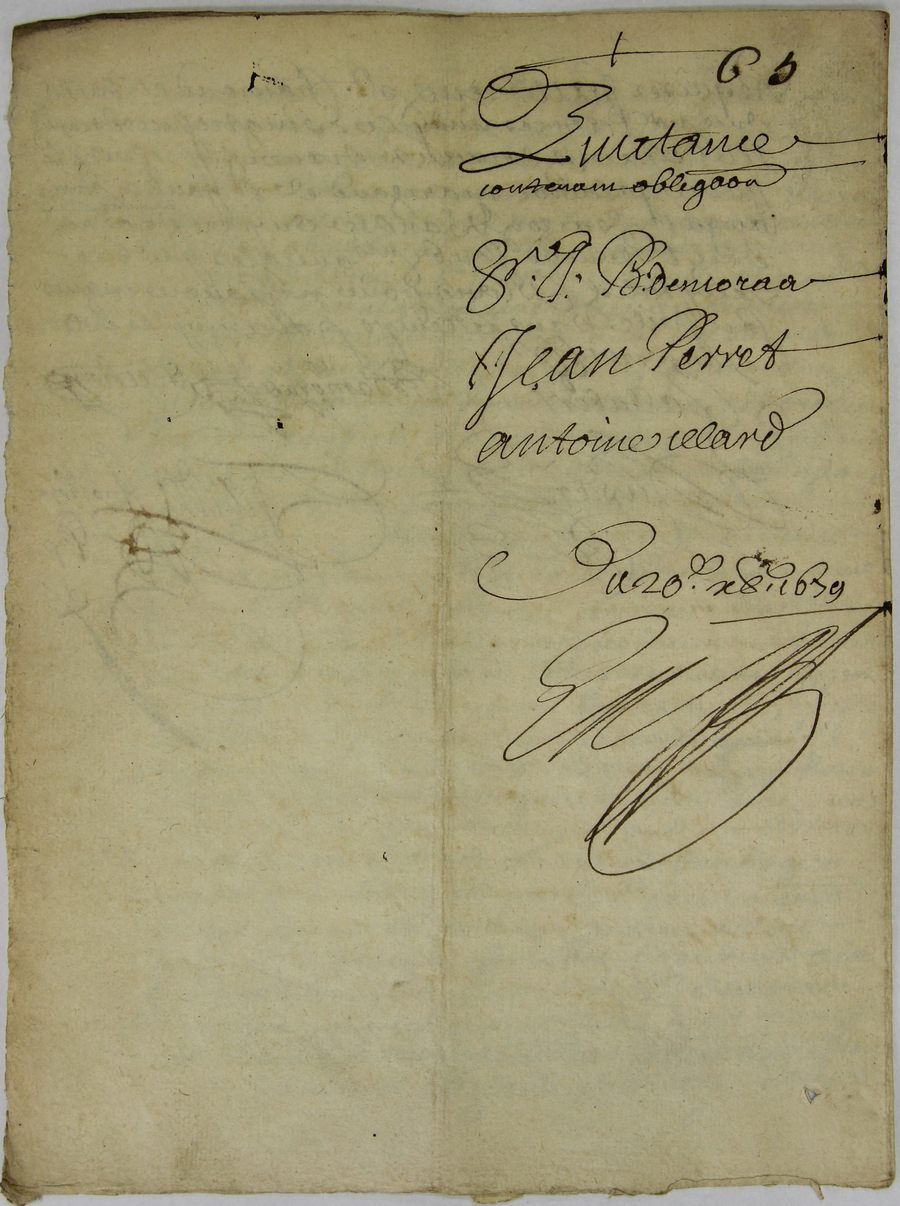 65
Quictance
contenant obligaon
Sr. P. B. demoraa
Jean Perret
antoine
Du 20e. xbre. 1659